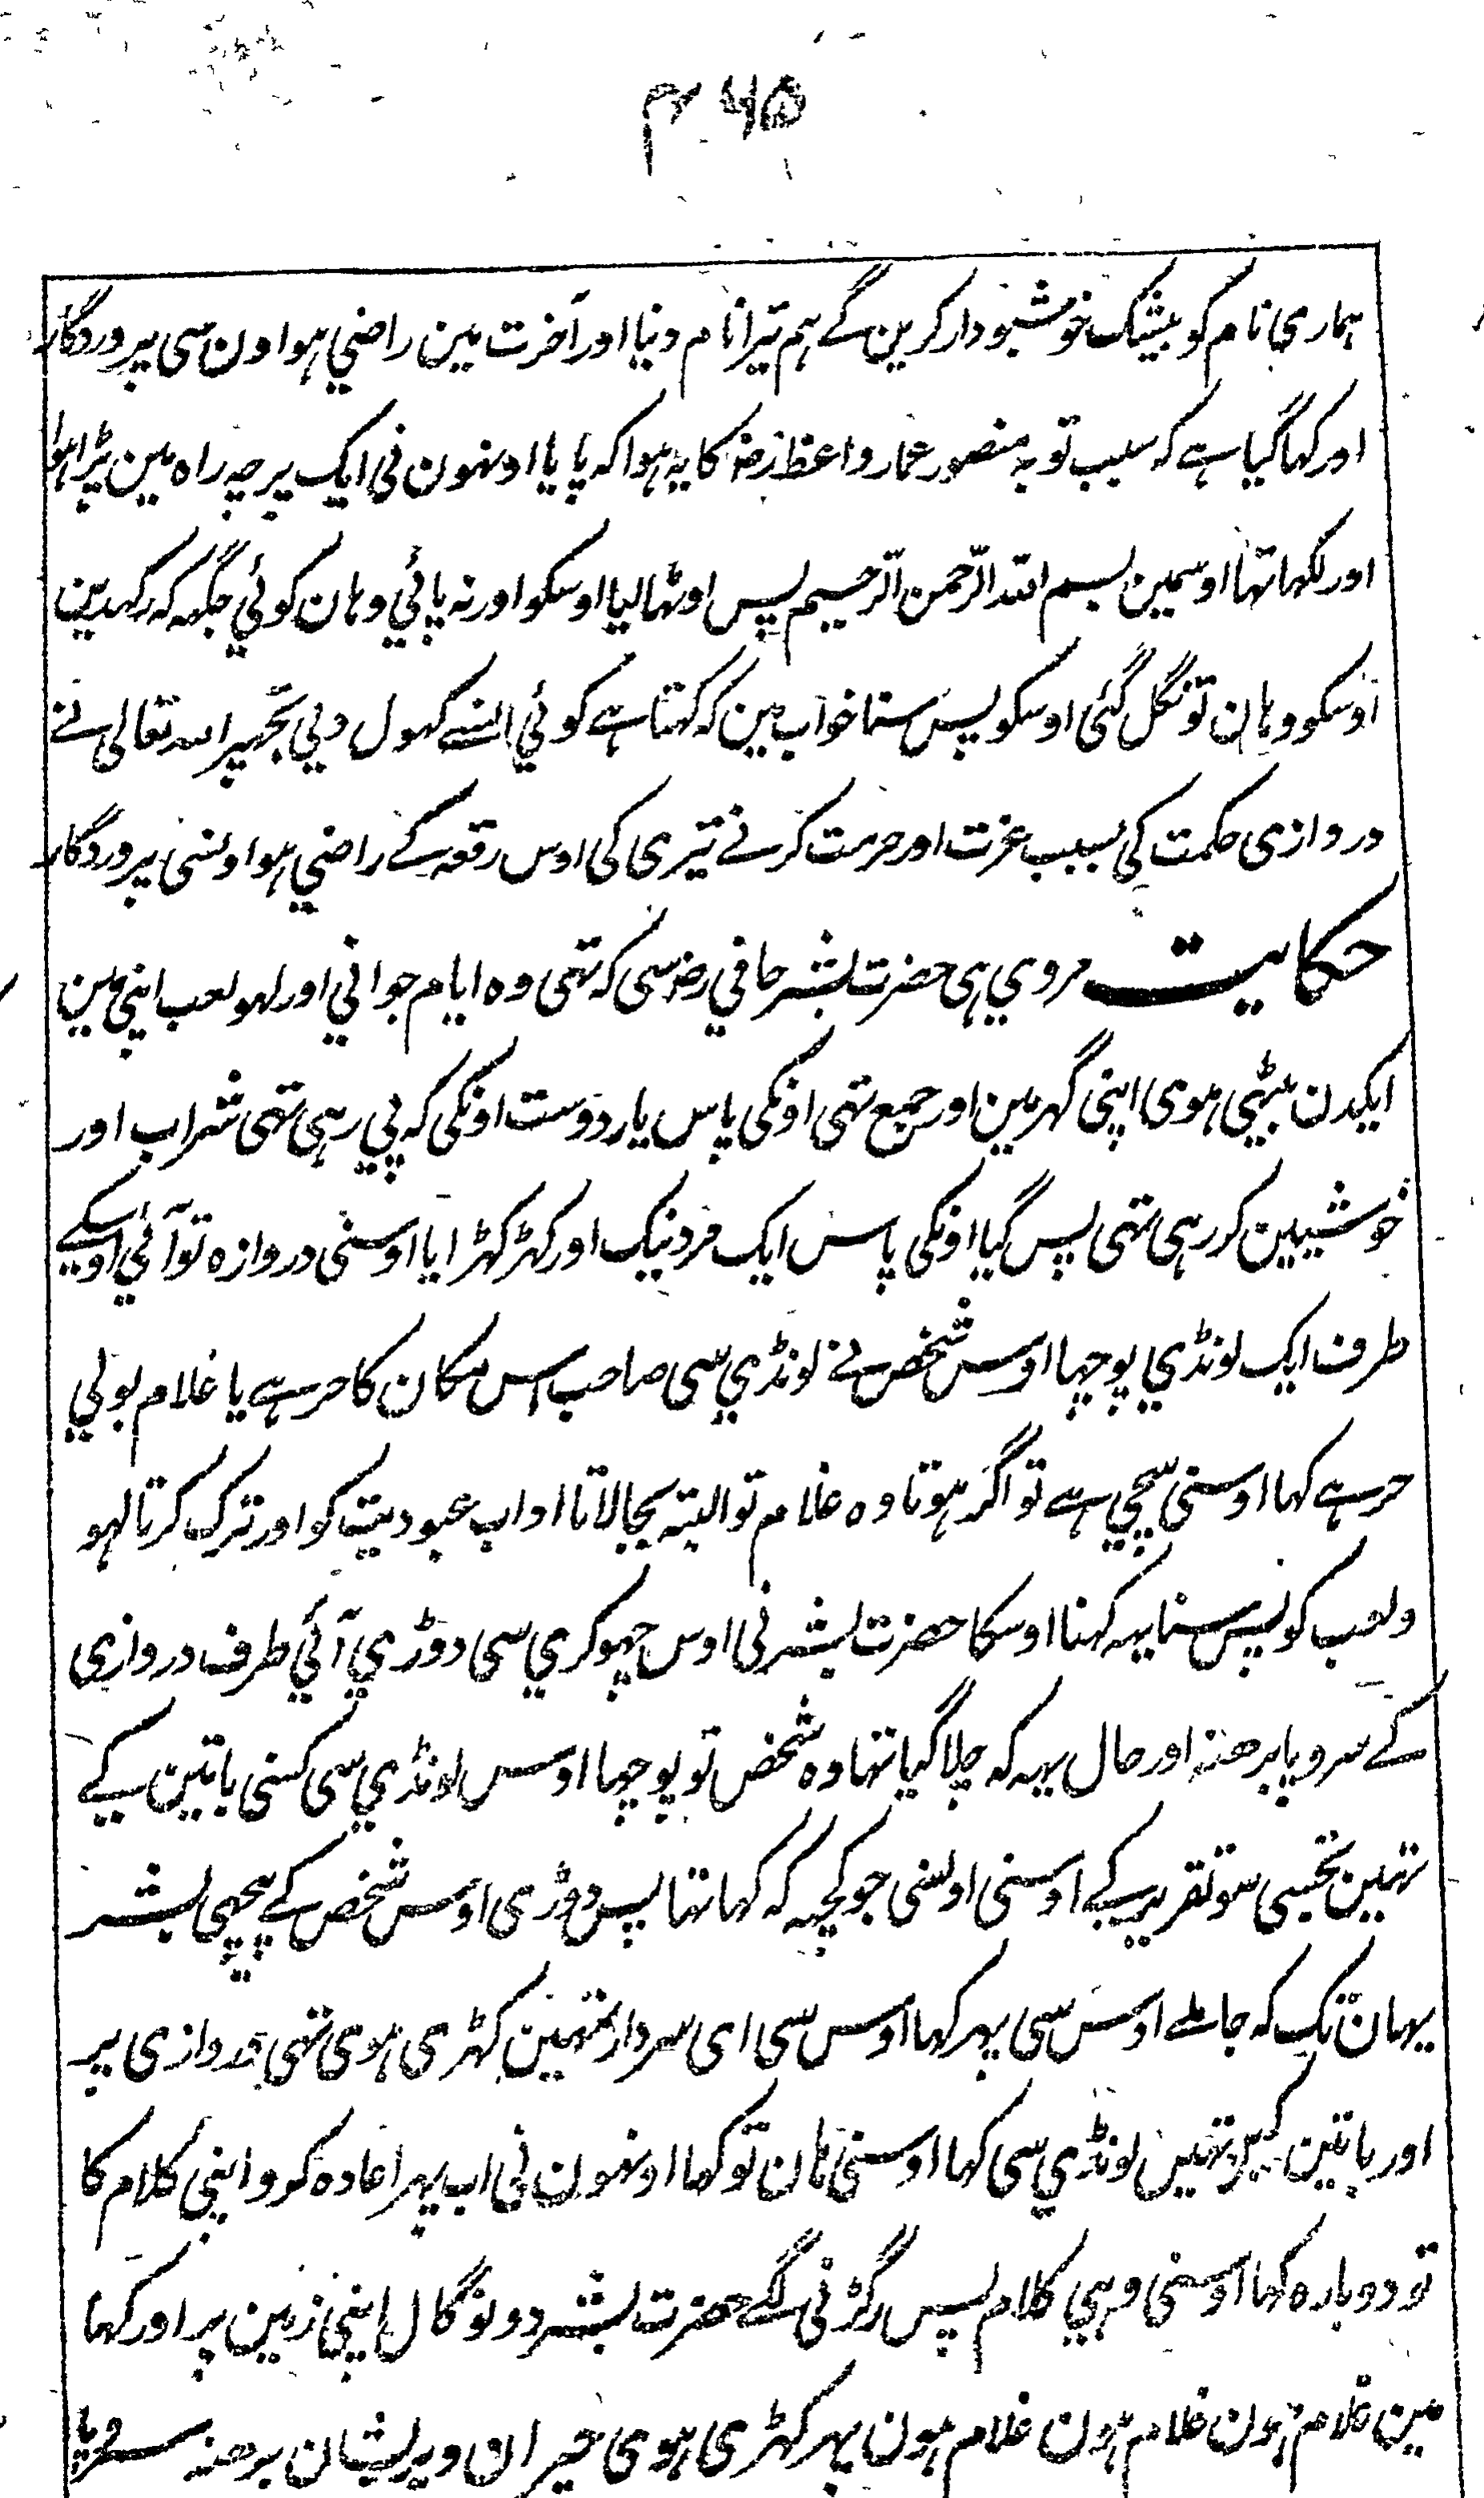 ۴۶۵
ہماری نام کو بیشک خوشبودار کرین گے ہم تیرا نام دنیا اور آخرت مین راضي ہوا ون سی پروردگار
اور کہا گیا ہے کہ سبب توبہ منصور عمار واعظ رض کا یہ ہوا کہ پایا اونہون نی ایک پرچہ راہ مین پڑا ہوا
اور لکہا تہا اوسمین بسم اللہ الرّحمن الرّحیم پس اوٹہا لیا اوسکو اور نہ پائي وہان کوئي جگہہ کہ رکہدین
اوسکو وہان تو نگل گئی اوسکو پس سنا خواب مین کہ کہتا ہے کوئي النسے کہول دیي تجہپر اللہ تعالی نے
دروازی حکمت کی بسبب عزت اور حرمت کرنے تیری کی اوس رقعہ کے راضي ہوا اونسی پروردگار
حکایت مروي ہی حضرت بشر حافي رض سی کہ تہی وہ ایام جواني اور لہو لعب اپنی مین
ایکدن بیٹہي ہوی اپنی گہر مین اور جمع تہی اونکی پاس یار دوست اونکی کہ پي رہی تہی شراب اور
خوشیین کر رہی تہی پس گیا اونکی پاس ایک مرد نیک اور کہڑکہڑایا اوسنی دروازہ تو آئي اوسکے
طرف ایک لونڈي پوچہا اوس شخص نے لونڈي سی صاحب اس مکان کا حر ہے یا غلام بولي
حر ہے کہا اوسنی سچي ہے تو اگر ہوتا وہ غلام تو البتہ بجا لاتا اداب عبودیت کو اور ترک کرتا لہو
ولعب کو پس سنا یہہ کہنا اوسکا حضرت بشر نی اوس چہوکري سی دوڑي آئي طرف دروازی
کے سر و پا برھنہ اور حال یہہ کہ چلا گیا تہا وہ شخص تو پوچہا اوس لونڈي سی کسنی باتین کے
تہین تجہسی سو تقریر کے اوسنی اونسی جو کچہہ کہ کہا تہا پس دوڑی اوس شخص کے پیچہی بشر
یہان تک کہ جا ملے اوس سی پہر کہا اوس سی ای سردار تمہین کہڑی ہوی تہی دروازی پر
اور باتین کین تہین لونڈي سی کہا اوسنی ہان تو کہا اونہون نی اب پہر اعادہ کرو اپنی کلام کا
تو دوبارہ کہا اوسنی وہي کلام پس رگڑنی لگے حضرت بشر دونو گال اپنی زمین پر اور کہا
مین غلام ہون غلام ہون غلام ہون پہر کہڑی ہوی حیران و پریشان برھنہ سر و پا